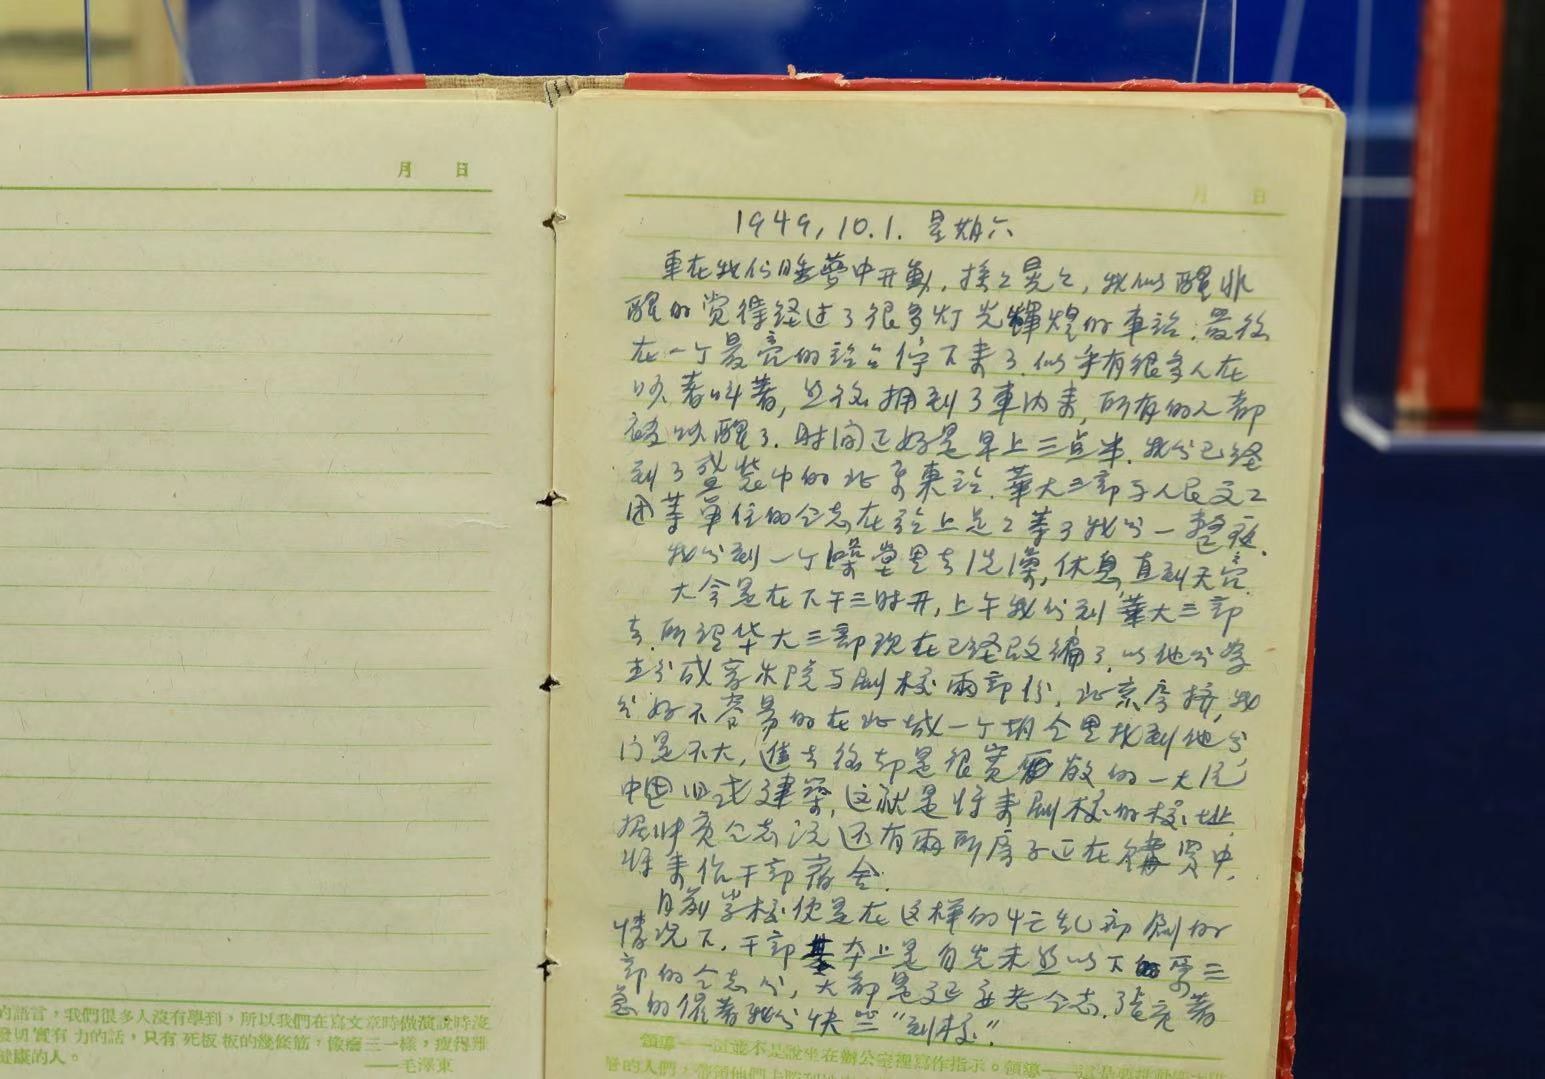 月 日
的語言，我們很多人沒有學到，所以我們在寫文章時做演說時沒
發切實有力的話，只有死板板的幾條筋，像癟三一樣，瘦得難
健康的人。
——毛澤東
月 日
1949,10.1. 星期六
車在我们睡夢中开動，摇々晃々，我似醒非
醒的觉得经过了很多灯光輝煌的車站，最後
在一个最亮的站台停下来了，似乎有很多人在
吵着叫着，然後拥到了車内来，所有的人都
被吵醒了，时间正好是早上三点半，我们已经
到了盛装中的北京東站，華大三部与人民文工
团等單位的仝志在站上足足等了我们一整夜。
我们到一个澡堂里去洗澡，休息，直到天亮。
大会是在下午三时开，上午我们到華大三部
去，所谓华大三部现在已经改编了，以他们为
主分成音乐院与剧校兩部份，北京房挤，我
们好不容易的在北城一个胡仝里找到他们，
门是不大，進去後却是很宽敞的一大院
中国旧式建築，这就是将来剧校的校址，
据仲亮仝志说还有兩所房子正在購買中，
将来作干部宿舍。
目前学校便是在这样的忙乱
情况下，干部基本上是
部的仝志们，大都是延安老仝志，
急的催着我们快些“到校”。
領導——這並不是說坐在辦公室裡寫作指示。領導——這是要推動